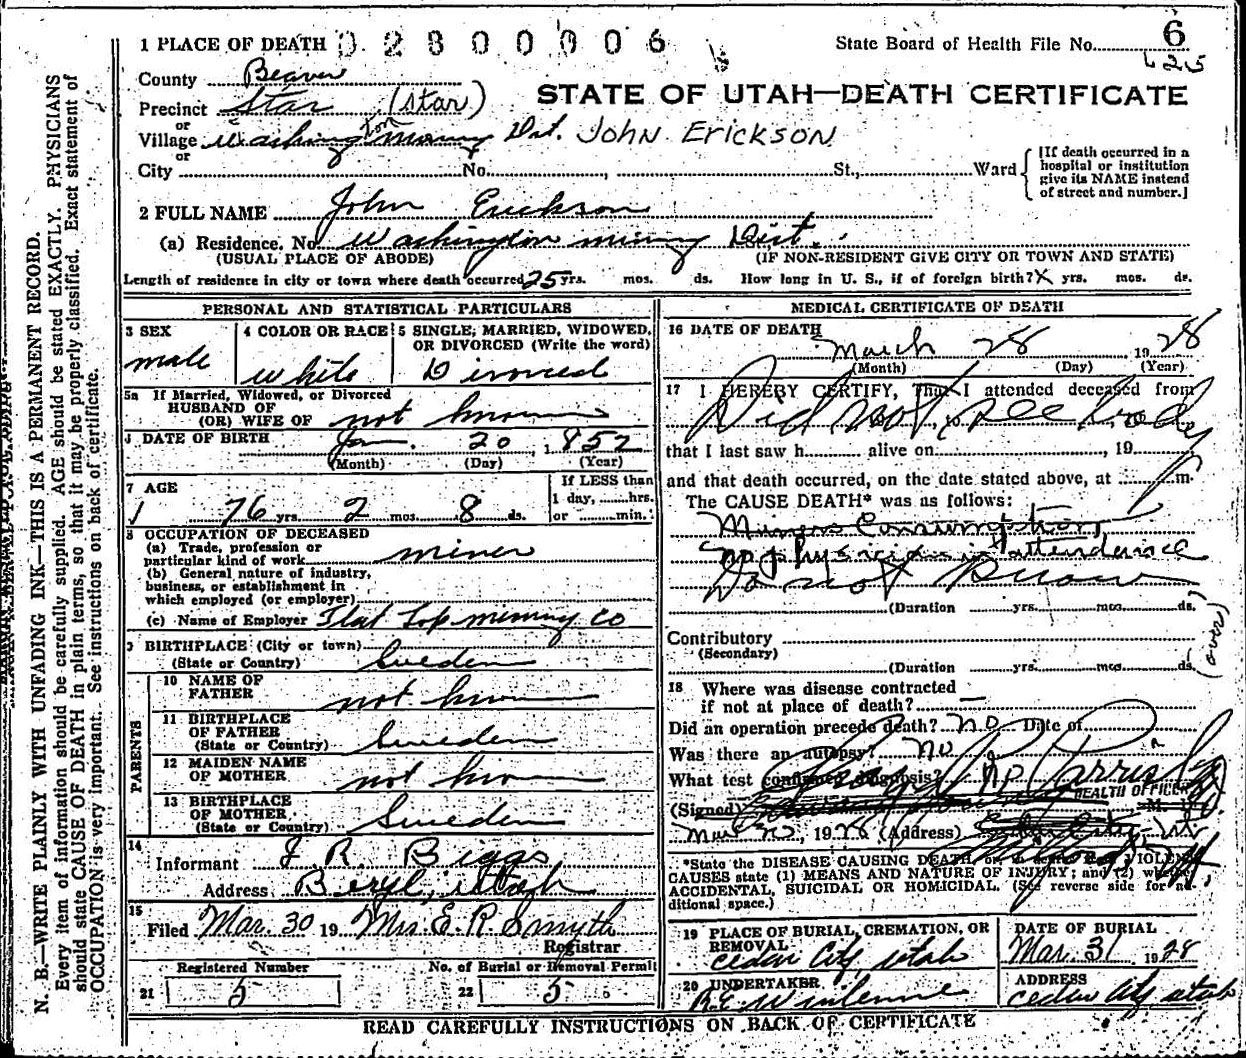 1 PLACE OF DEATH 0 2 8 0 0 0 0 6
State Board of Health File No. 6
625
County Beaver
Precinct Star (Star)
STATE OF UTAH—DEATH CERTIFICATE
or
Village Washington mining Dist. John Erickson
or
City No. , St., Ward
[If death occurred in a
hospital or institution
give its NAME instead
of street and number.]
2 FULL NAME John Erickson
(a) Residence. No. Washington mining Dist.
(USUAL PLACE OF ABODE) (IF NON-RESIDENT GIVE CITY OR TOWN AND STATE)
Length of residence in city or town where death occurred 25 yrs. mos. ds. How long in U. S., if of foreign birth? X yrs. mos. ds.
PERSONAL AND STATISTICAL PARTICULARS
3 SEX
male
4 COLOR OR RACE
White
5 SINGLE, MARRIED, WIDOWED,
OR DIVORCED (Write the word)
Divorced
5a If Married, Widowed, or Divorced
HUSBAND OF
(OR) WIFE OF not known
6 DATE OF BIRTH Jan. 20 1852
(Month) (Day) (Year)
7 AGE
76 yrs. 2 mos. 8 ds.
If LESS than
1 day, hrs.
or min.
8 OCCUPATION OF DECEASED
(a) Trade, profession or
particular kind of work miner
(b) General nature of industry,
business, or establishment in
which employed (or employer)
(c) Name of Employer Flat Top mining Co
9 BIRTHPLACE (City or town)
(State or Country) Sweden
PARENTS
10 NAME OF
FATHER not known
11 BIRTHPLACE
OF FATHER
(State or Country) Sweden
12 MAIDEN NAME
OF MOTHER not known
13 BIRTHPLACE
OF MOTHER
(State or Country) Sweden
14
Informant J. R. Biggs
Address Beryl, Utah
15
Filed Mar. 30 19 Mrs. E. R. Smyth
Registrar
Registered Number
21 5
No. of Burial or Removal Permit
22 5
MEDICAL CERTIFICATE OF DEATH
16 DATE OF DEATH
March 28 1928
(Month) (Day) (Year)
17 I HEREBY CERTIFY, That I attended deceased from
Did not see body
that I last saw h alive on , 19
and that death occurred, on the date stated above, at m.
The CAUSE DEATH* was as follows:
Miners Consumption
no physician in attendance
Do not know
(Duration yrs. mos. ds.)
(over)
Contributory
(Secondary)
(Duration yrs. mos. ds.
18 Where was disease contracted
if not at place of death?
Did an operation precede death? no Date of
Was there an autopsy? no
What test confirmed diagnosis? no
(Signed) Parrish
HEALTH OFFICER
M. D.
(Address)
Milford, Ut.
*State the DISEASE CAUSING DEATH, or, in deaths from VIOLENT
CAUSES state (1) MEANS AND NATURE OF INJURY; and (2) whether
ACCIDENTAL, SUICIDAL OR HOMICIDAL. (See reverse side for ad-
ditional space.)
19 PLACE OF BURIAL, CREMATION, OR
REMOVAL
Cedar City, Utah
DATE OF BURIAL
Mar. 31 1928
20 UNDERTAKER
ADDRESS
Cedar City Utah
READ CAREFULLY INSTRUCTIONS ON BACK OF CERTIFICATE
N. B.—WRITE PLAINLY WITH UNFADING INK—THIS IS A PERMANENT RECORD.
Every item of information should be carefully supplied. AGE should be stated EXACTLY. PHYSICIANS
should state CAUSE OF DEATH in plain terms, so that it may be properly classified. Exact statement of
OCCUPATION is very important. See instructions on back of certificate.